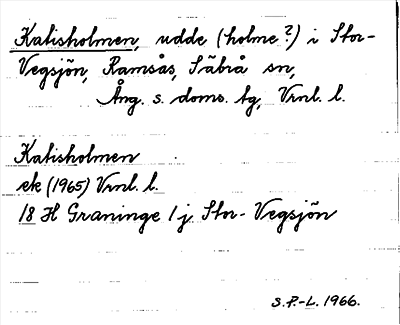 Kalisholmen, udde (holme?) i Stor-
Vegsjön, Ramsås, Säbrå sn,
Ång. s. doms. tg, Vrnl. l.
Kalisholmen
ek (1965) Vrnl. l.
18 H Graninge 1 j Stor-Vegsjön
S.P.-L. 1966.